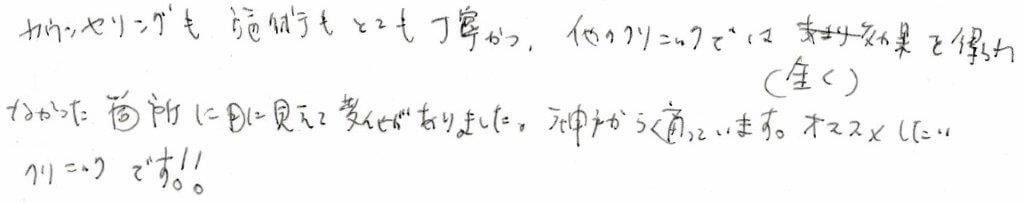 カウンセリングも施術もとても丁寧かつ、他のクリニックではあまり効果を得られ
(全く)
なかった箇所に目に見えて変化がありました。神戸から通っています。オススメしたい
クリニックです!!